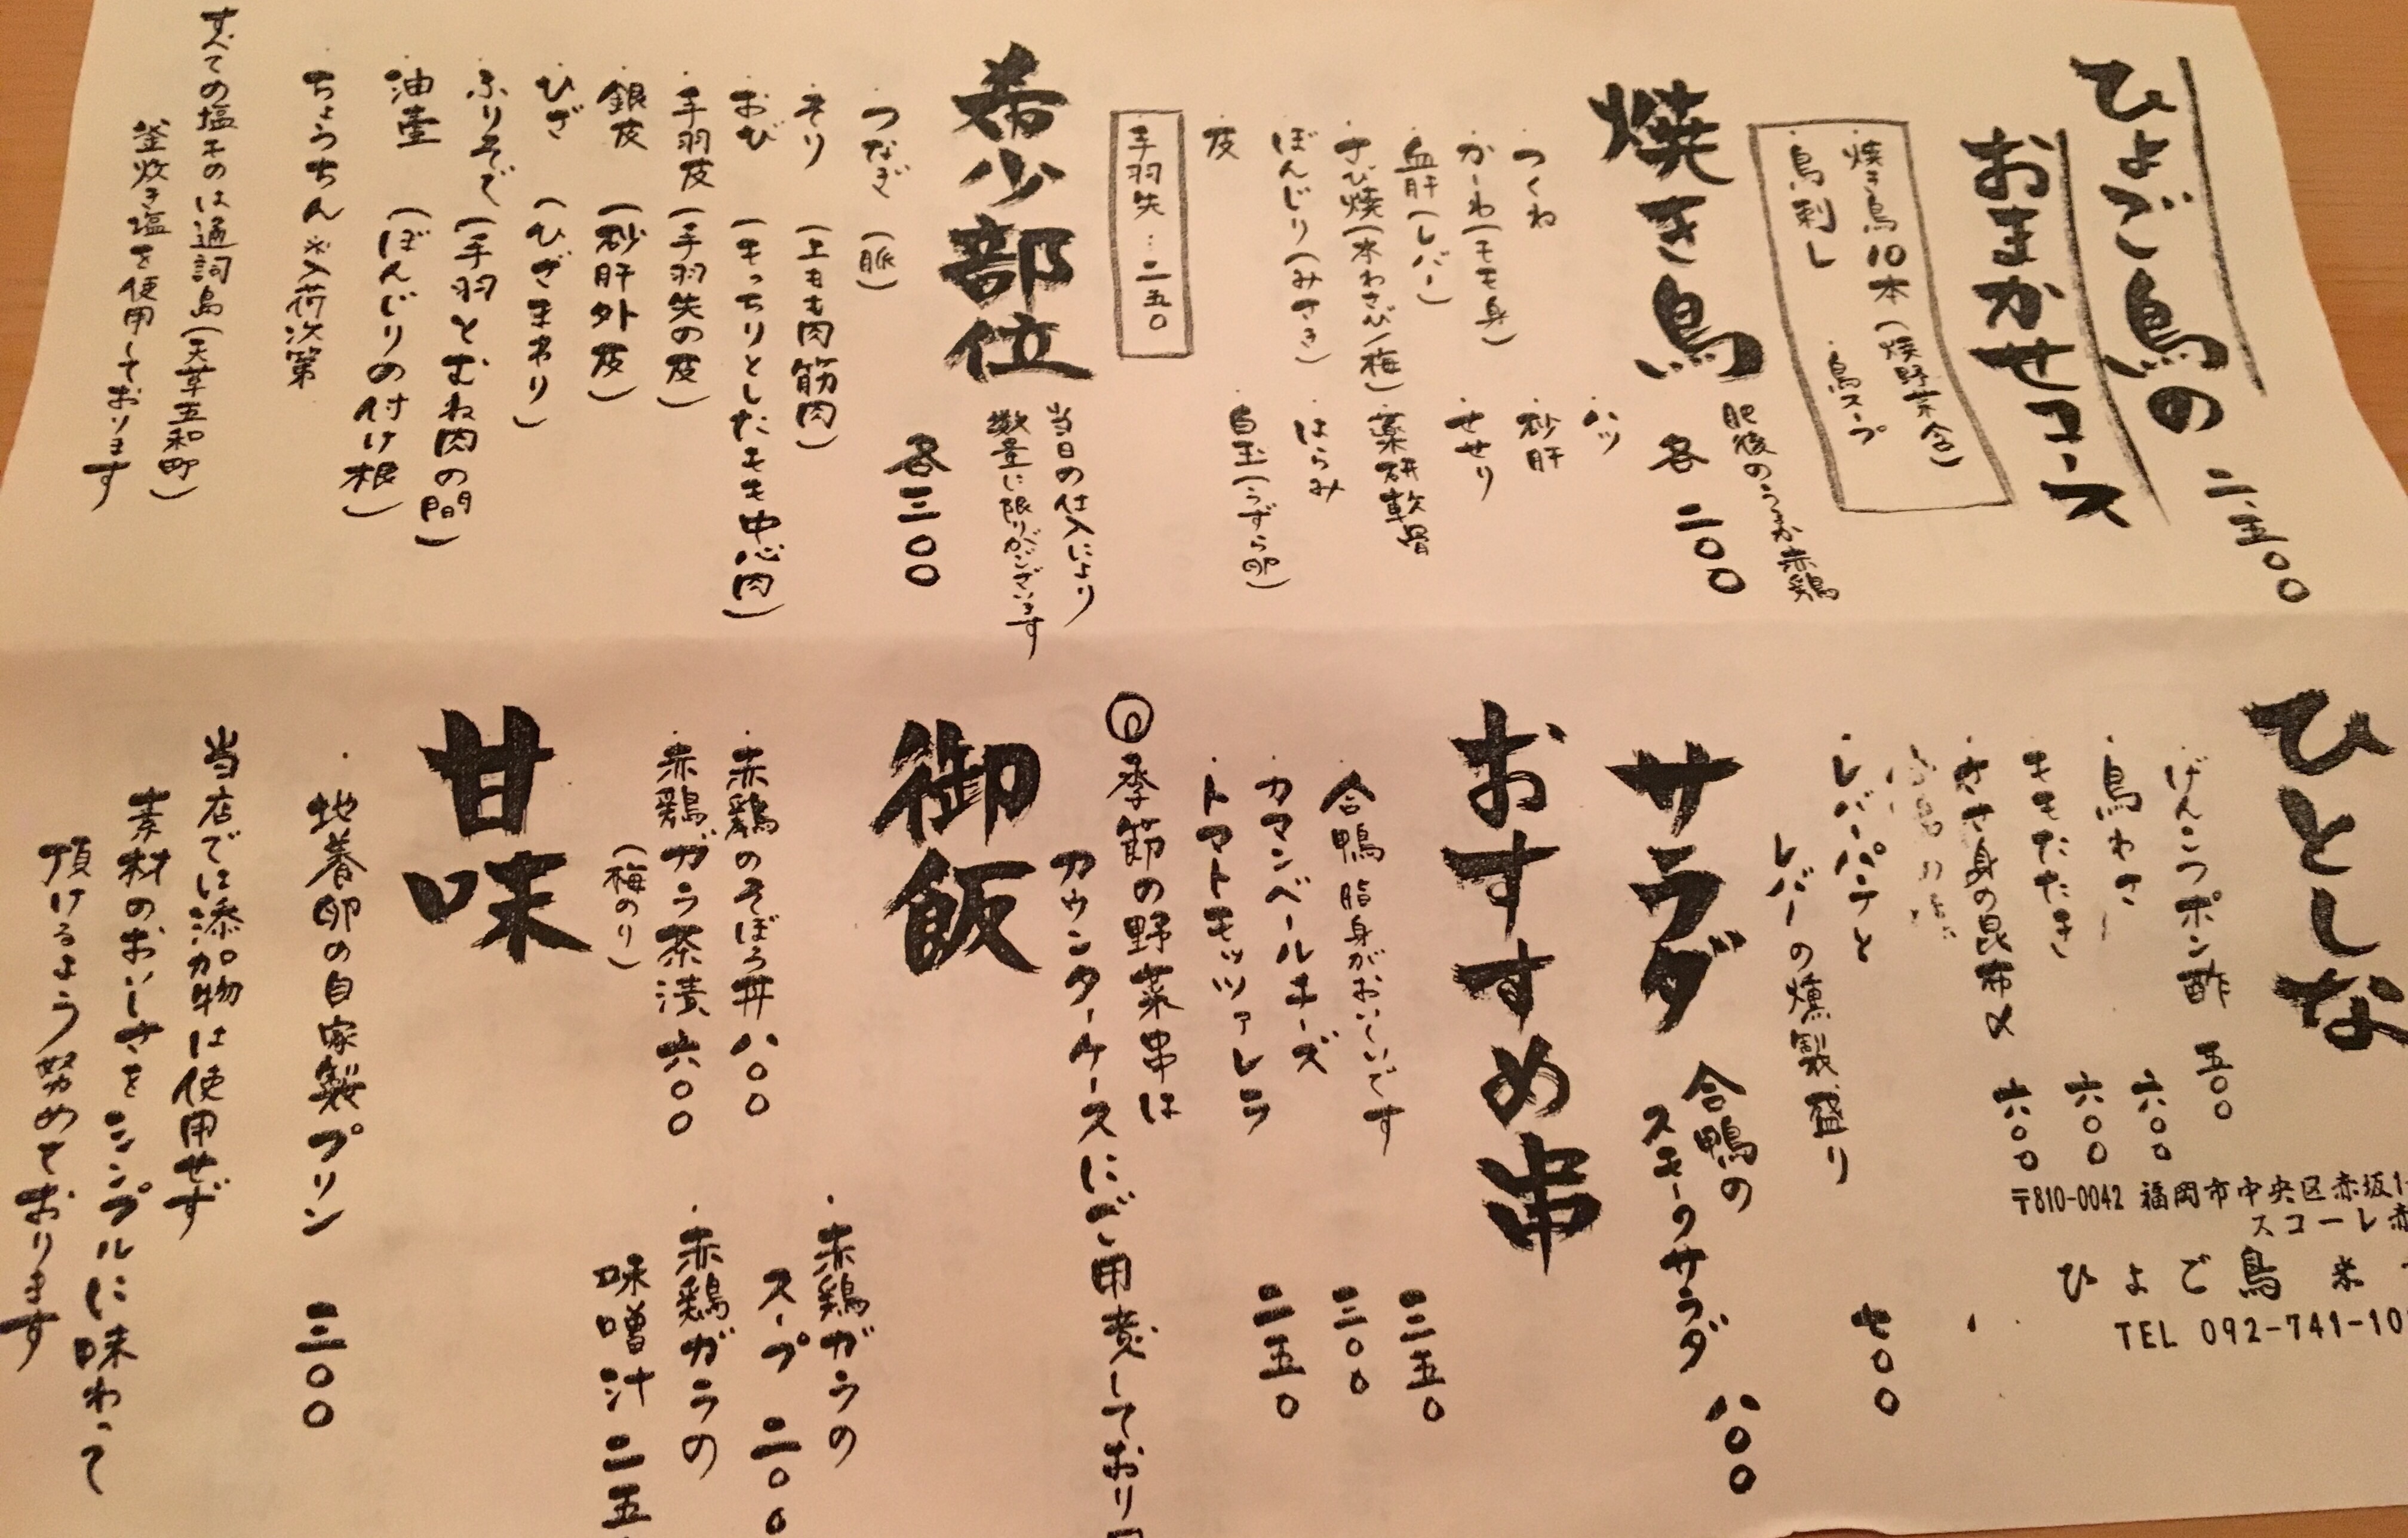 ひよご鳥の 二、五〇〇
おまかせコース
・焼き鳥10本(焼野菜含)
・鳥刺し ・鳥スープ
焼き鳥 肥後のうまか赤鶏
各 二〇〇
・つくね ・ハツ
・かーわ(モモ身) ・砂肝
・血肝(レバー) ・せせり
・さび焼(本わさび/梅) ・薬研軟骨
・ぼんじり(みさき) ・はらみ
・皮 ・白玉(うずら卵)
・手羽先…二五〇
希少部位 当日の仕入により
数量に限りがございます
各 三〇〇
・つなぎ (脈)
・そり (上もも肉筋肉)
・おび (もっちりとしたモモ中心肉)
・手羽皮 (手羽先の皮)
・銀皮 (砂肝外皮)
・ひざ (ひざまわり)
・ふりそで (手羽とむね肉の間)
・油壷 (ぼんじりの付け根)
・ちょうちん ※入荷次第
すべての塩ものは通詞島(天草五和町)
釜炊き塩を使用しております
ひとしな
・げんこつポン酢 五〇〇
・鳥わさ 六〇〇
・ももたたき 六〇〇
・ささ身の昆布〆 六〇〇
・レバーパテと
レバーの燻製盛り 七〇〇
サラダ 合鴨の
スモークサラダ 八〇〇
おすすめ串
・合鴨 脂身がおいしいです 三五〇
・カマンベールチーズ 三〇〇
・トマトモッツァレラ 二五〇
季節の野菜串は
カウンターケースにご用意しており
御飯
・赤鶏のそぼろ丼 八〇〇
・赤鶏ガラ茶漬 六〇〇
(梅のり)
・赤鶏ガラの
スープ 二〇〇
・赤鶏ガラの
味噌汁 二五
甘味
・地養卵の自家製プリン 三〇〇
当店では添加物は使用せず
素材のおいしさをシンプルに味わって
頂けるよう努めております
〒810-0042 福岡市中央区赤坂1-
スコーレ赤
ひよご鳥
TEL 092-741-10